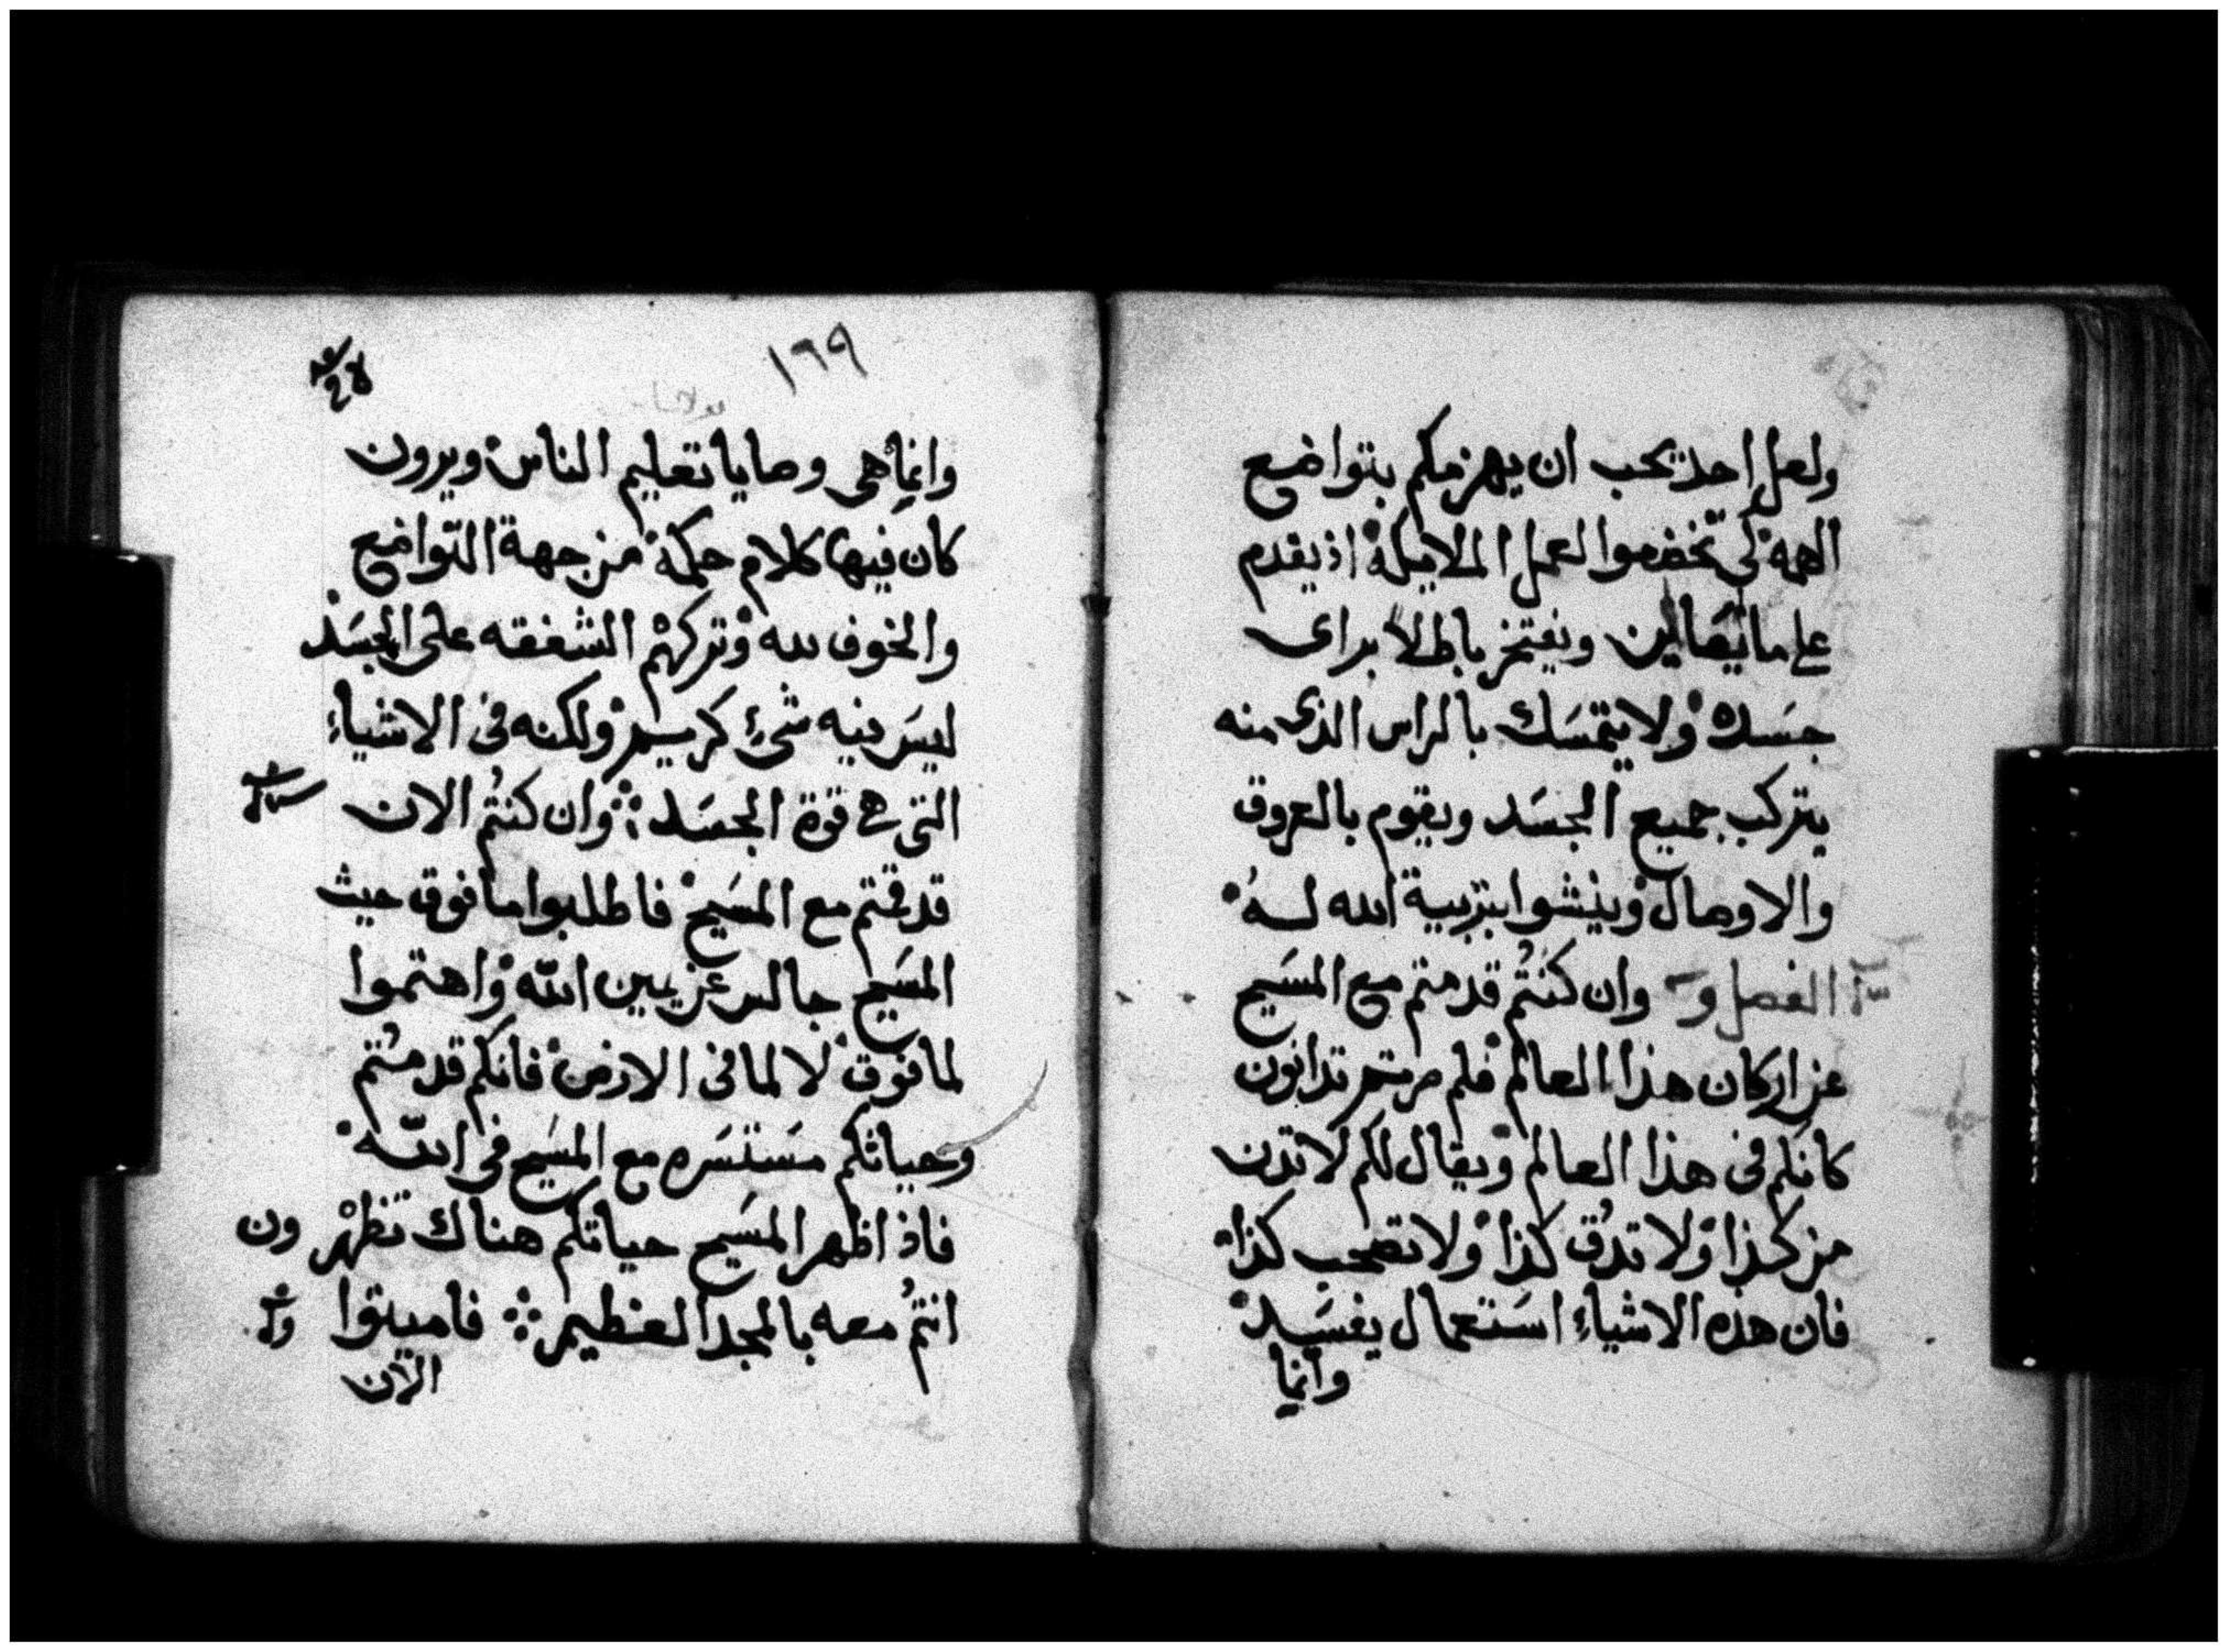 ولعل احد يحب ان يهزمكم بتواضع
الهمه لكى تخضعوا لعمل الملايكة اذ يقدم
على ما لم يعاين ويفتخر باطلا براى
جسده ولا يتمسك بالراس الذى منه
يتركب جميع الجسد ويقوم بالعروق
والاوصال وينشوا بتربية الله له
الفصل و وان كنتم قد متم مع المسيح
عن اركان هذا العالم فلم صرتم تدانون
كانكم فى هذا العالم ويقال لكم لا تدن
من كذا ولا تدق كذا ولا تصحب كذا
فان هذه الاشياء استعمال يفسد
وانما
١٦٩
وانما هى وصايا تعليم الناس ويرون
كان فيها كلام حكمة من جهة التواضع
والخوف لله وتركهم الشفقه على الجسد
ليس فيه شىء كريم ولكنه فى الاشياء
التى هى قوة الجسد ۞ وان كنتم الان
قد قمتم مع المسيح فاطلبوا ما فوق حيث
المسيح جالس عن يمين الله واهتموا
لما فوق لا لما فى الارض فانكم قد متم
وحياتكم مستسره مع المسيح فى الله
فاذا ظهر المسيح حياتكم هناك تظهرون
انتم معه بالمجد العظيم ۞ فاميتوا
الان